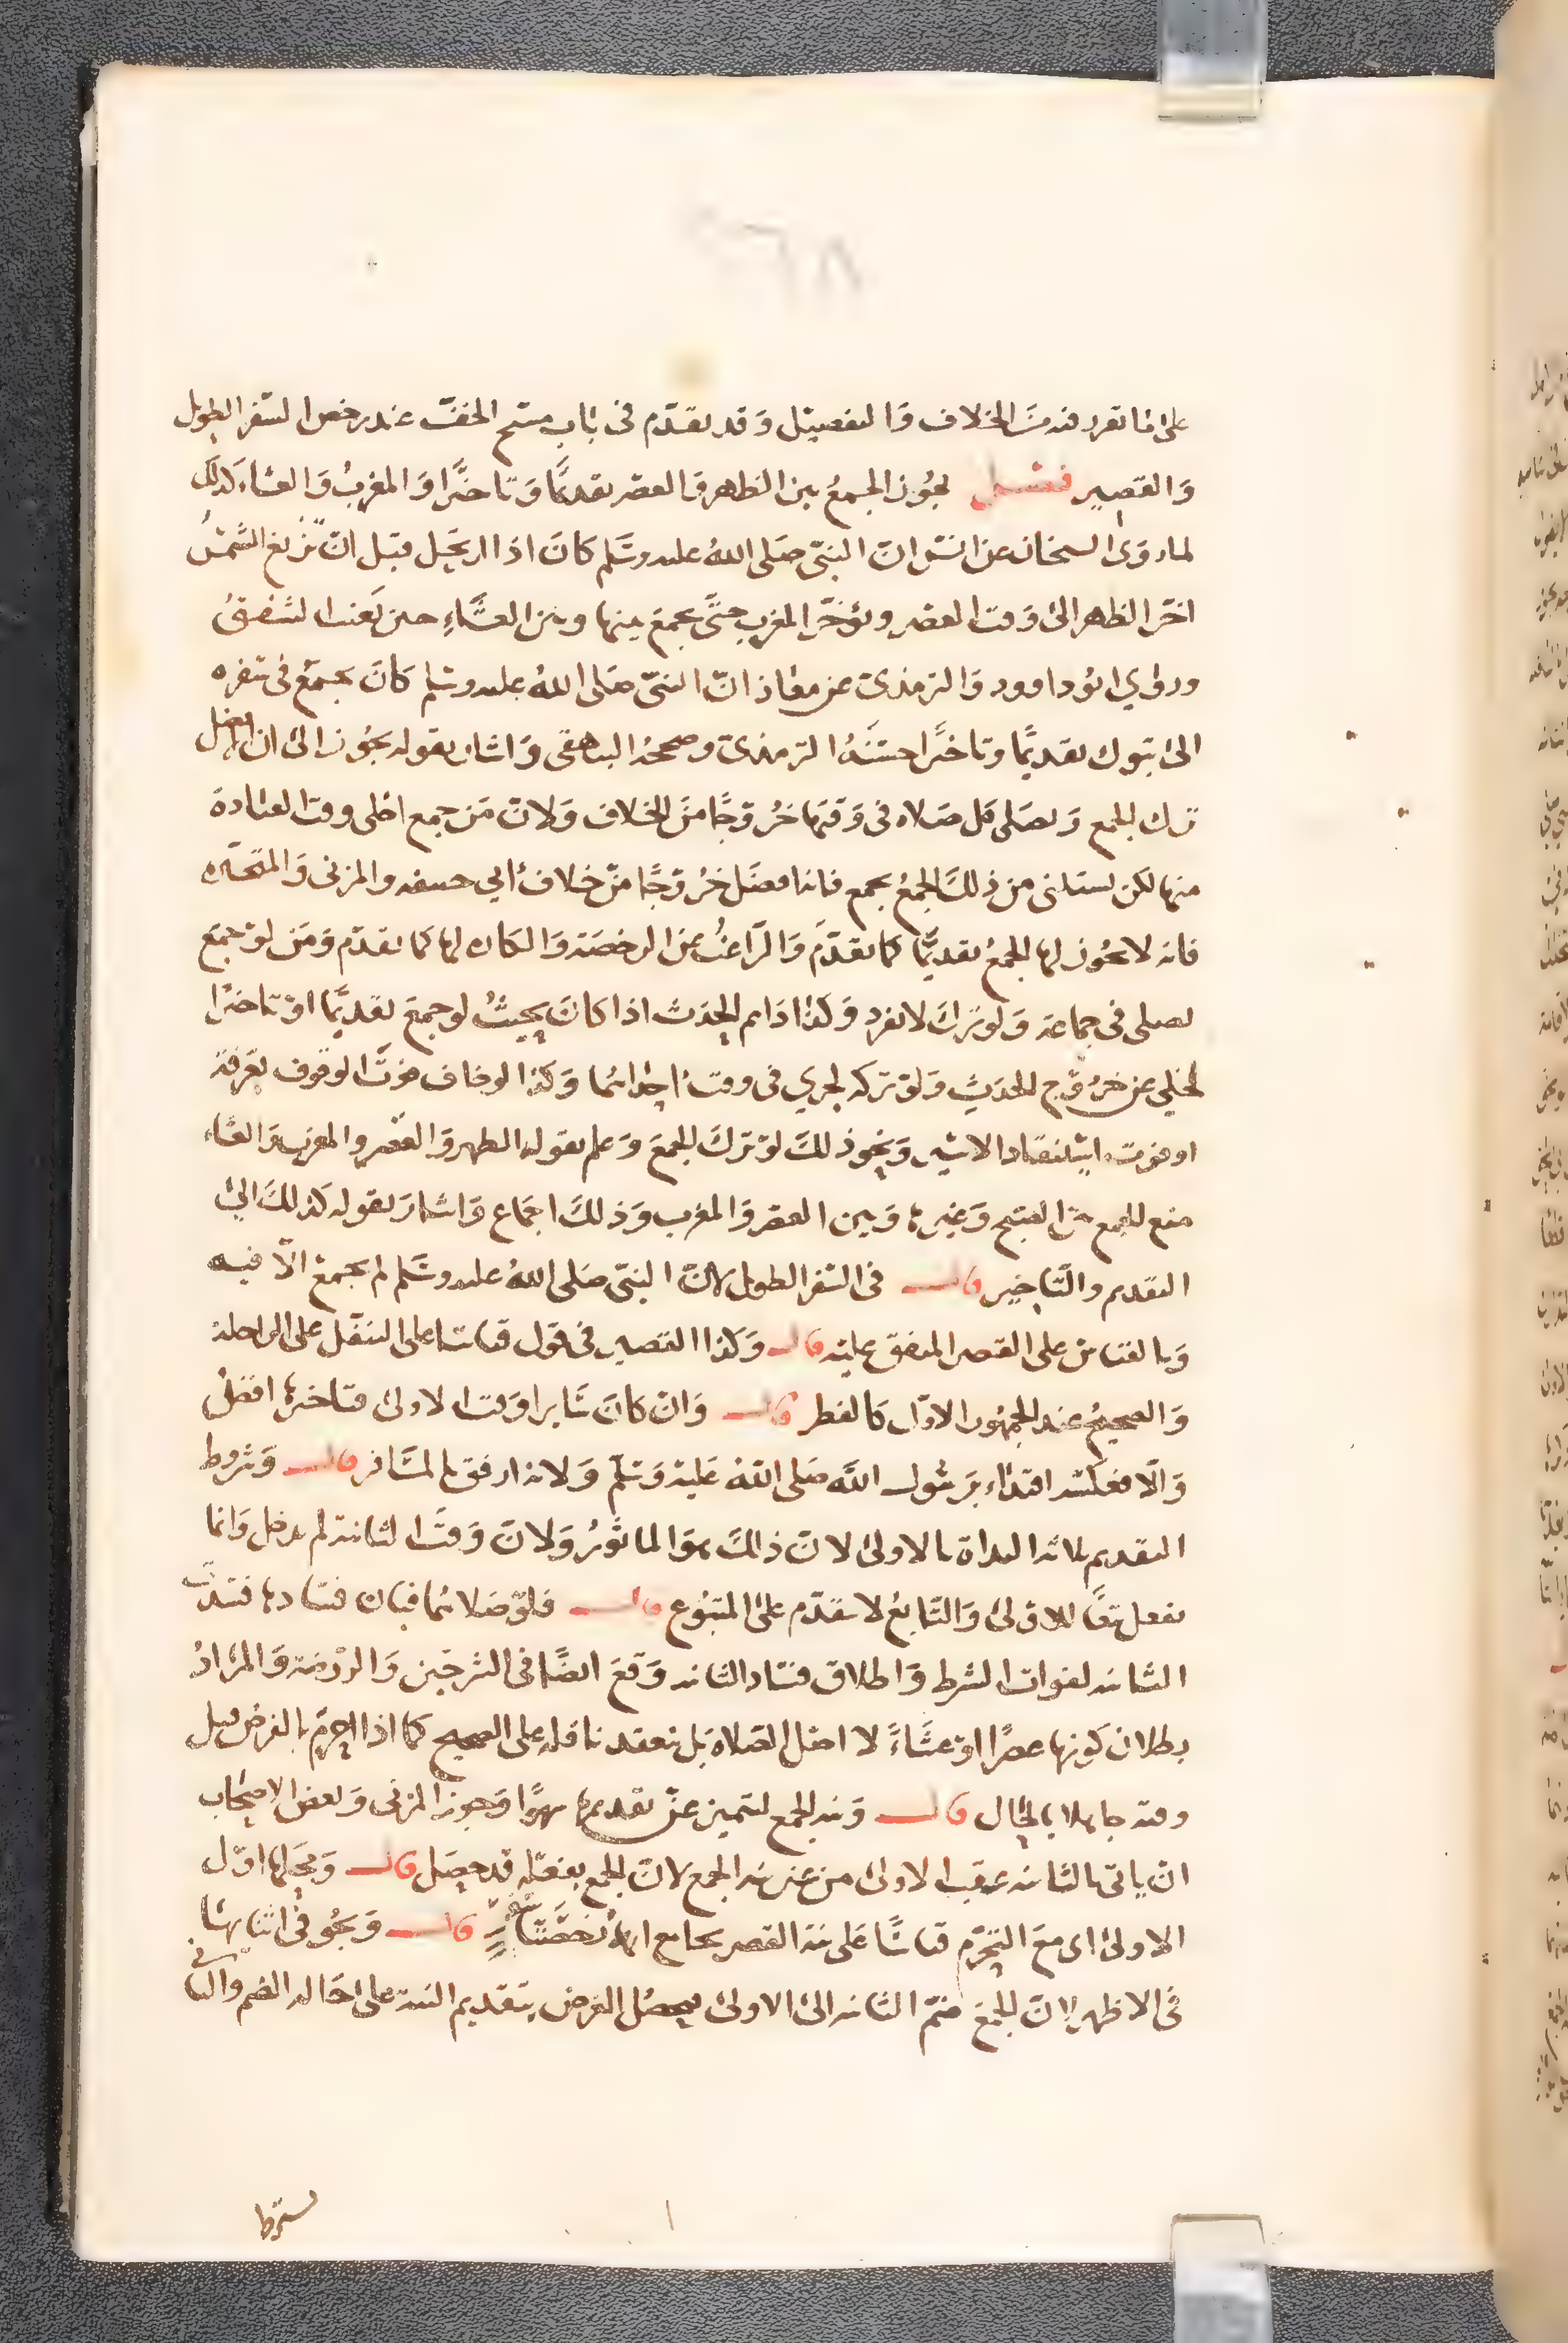 على ما تقرر فيه من الخلاف والتفصيل وقد تقدم في باب مسح الخف عند رخص السفر الطويل
والقصير فصل يجوز الجمع بين الظهر والعصر تقديمًا وتاخيرًا والمغرب والعشاء كذلك
لما روى الشيخان عن انس ان النبي صلى الله عليه وسلم كان اذا ارتحل قبل ان تزيغ الشمس
اخر الظهر الى وقت العصر ويؤخر المغرب حتى يجمع بينها وبين العشاء حين يغيب الشفق
وروي ابو داوود والترمذي عن معاذ ان النبي صلى الله عليه وسلم كان يجمع في سفره
الى تبوك تقديمًا وتاخيرًا حسنه الترمذي وصححه البيهقي واشار بقوله يجوز الى ان الافضل
ترك الجمع ويصلي كل صلاه في وقتها خروجًا من الخلاف ولان من جمع اخلى وقت العبادة
منها لكن يستثنى من ذلك الجمع بجمع فانه افضل خروجًا من خلاف أبي حنيفه والمزني والمتحيره
فانه لا يجوز لها الجمع تقديمًا كما تقدم والراغب عن الرخصة والكاره لها كما تقدم ومن لو جمع
لصلى في جماعة ولو ترك لانفرد وكذا دايم الحدث اذا كان بحيث لو جمع تقديمًا او تاخيرًا
لخلى عن خروج الحدث ولو تركه لجرى في وقت احداهما وكذا لو خاف فوت الوقوف بعرفة
او فوت استنقاذ الاسير ونحو ذلك لو ترك الجمع وعلم بقوله الظهر والعصر والمغرب والعشاء
منع الجمع بين الصبح وغيرها وبين العصر والمغرب وذلك اجماع واشار بقوله كذلك الى
التقديم والتاخير قال في السفر الطويل لان النبي صلى الله عليه وسلم لم يجمع الا فيه
وبالقياس على القصر المتفق عليه قال وكذا القصير في قول قياسا على التنفل على الراحلة
والصحيح عند الجمهور الاول كالفطر قال وان كان سايرا وقت الاولى فتاخيرها افضل
والا فعكسه اقتداء برسول الله صلى الله عليه وسلم ولانه ارفق بالمسافر قال وشروط
التقديم ثلاثة البداة بالاولى لان ذلك هو الماثور ولان وقت الثانية لم يدخل وانما
تفعل تبعًا للاولى والتابع لا يتقدم على المتبوع قال فلو صلاهما فبان فسادها فسدت
الثانية لفوات الشرط واطلاق فساد الثانية وقع ايضًا في الشرحين والروضة والمراد
بطلان كونها عصرًا او عشاءً لا اصل الصلاه بل تنعقد نافلة على الصحيح كما اذا احرم بالفرض قبل
وقته جاهلا بالحال قال ونية الجمع لتتميز عن تقديمها سهوًا وجوز المزني وبعض الاصحاب
ان ياتي بالثانية عقب الاولى من غير نية الجمع لان الجمع بفعله قد حصل قال ومحلها اول
الاولى اي مع التحرم قياسًا على نية القصر بجامع انهما رخصتا سفر قال وتجوز في اثنايها
في الاظهر لان الجمع ضم الثانية الى الاولى فيحصل الغرض بتقديم النية على حالة الضم والثاني
يشترط